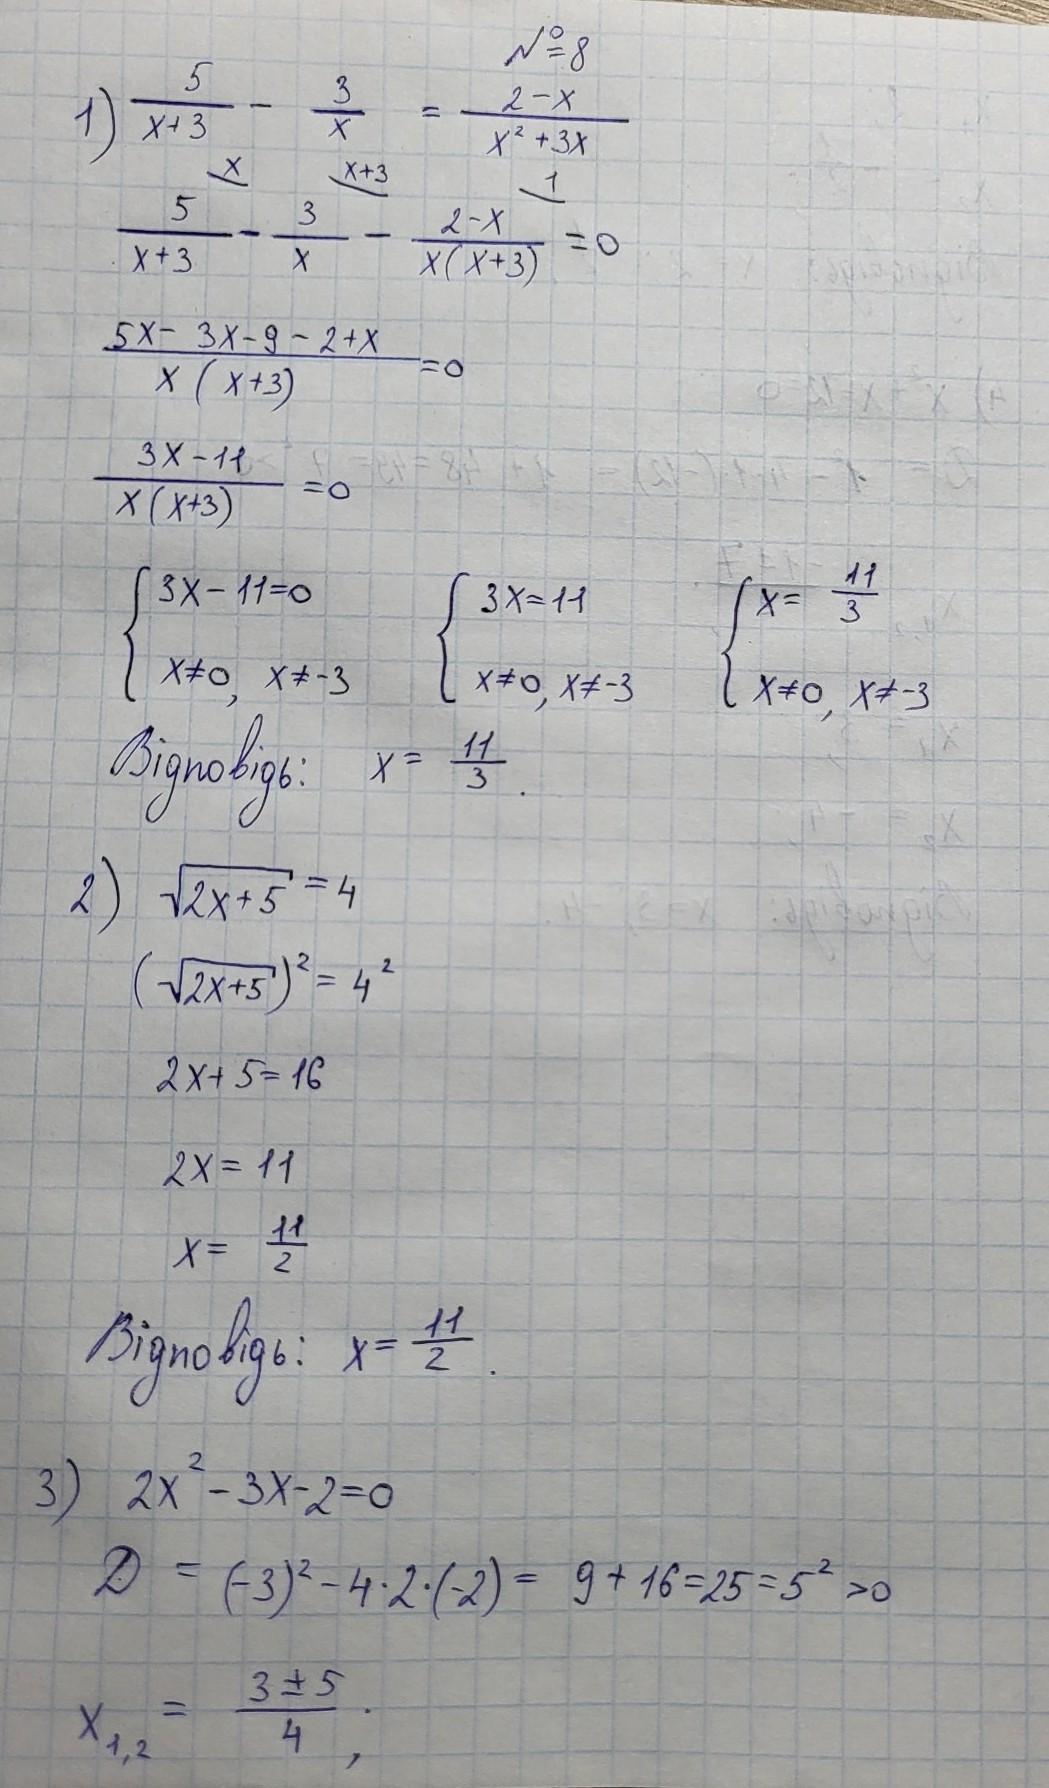 №8
1) 5/(x+3) - 3/x = (2-x)/(x²+3x)
x x+3 1
5/(x+3) - 3/x - (2-x)/(x(x+3)) = 0
(5x-3x-9-2+x)/(x(x+3)) = 0
(3x-11)/(x(x+3)) = 0
{3x-11=0 {3x=11 {x= 11/3
x≠0, x≠-3 x≠0, x≠-3 x≠0, x≠-3
Відповідь: x= 11/3.
2) √(2x+5) = 4
(√(2x+5))² = 4²
2x+5=16
2x=11
x= 11/2
Відповідь: x= 11/2.
3) 2x²-3x-2=0
D = (-3)²-4·2·(-2) = 9+16=25=5²>0
x₁,₂ = (3±5)/4;